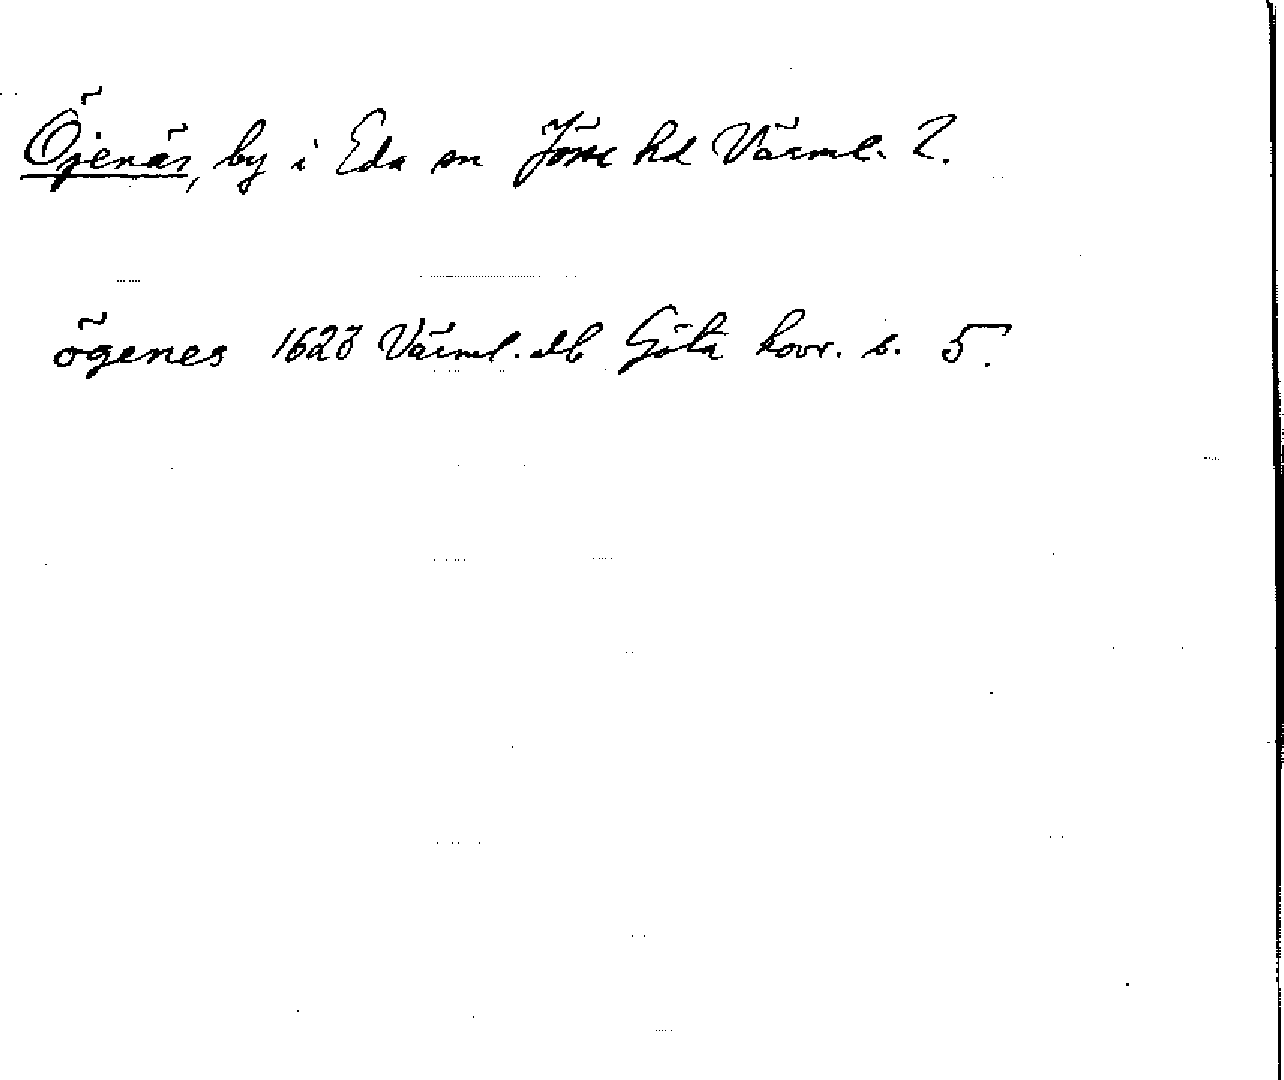 Öjenäs, by i Eda sn Jösse hd Värml. l.
ögenes 1628 Värml. db Göta hovr. s. 5.